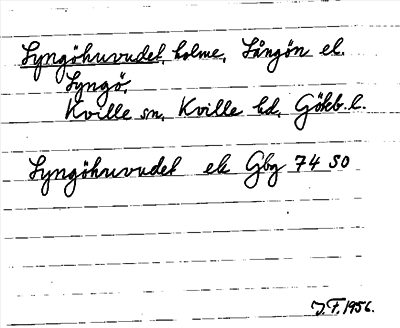 Lyngöhuvudet, holme, Långön el.
Lyngö,
Kville sn, Kville hd, Gökb. l.
Lyngöhuvudet ek Gbg 74 SO
J.F. 1956.